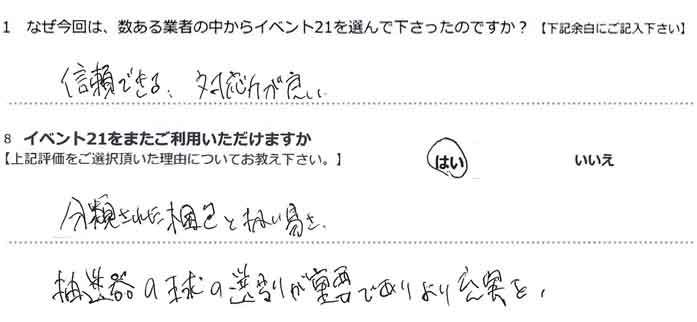 1 なぜ今回は、数ある業者の中からイベント21を選んで下さったのですか？【下記余白にご記入下さい】
信頼できる、対応が良い
8 イベント21をまたご利用いただけますか
【上記評価をご選択頂いた理由についてお教え下さい。】 はい いいえ
分類された梱包と扱い易さ、
抽選器の球の選別が重要でありより充実を、